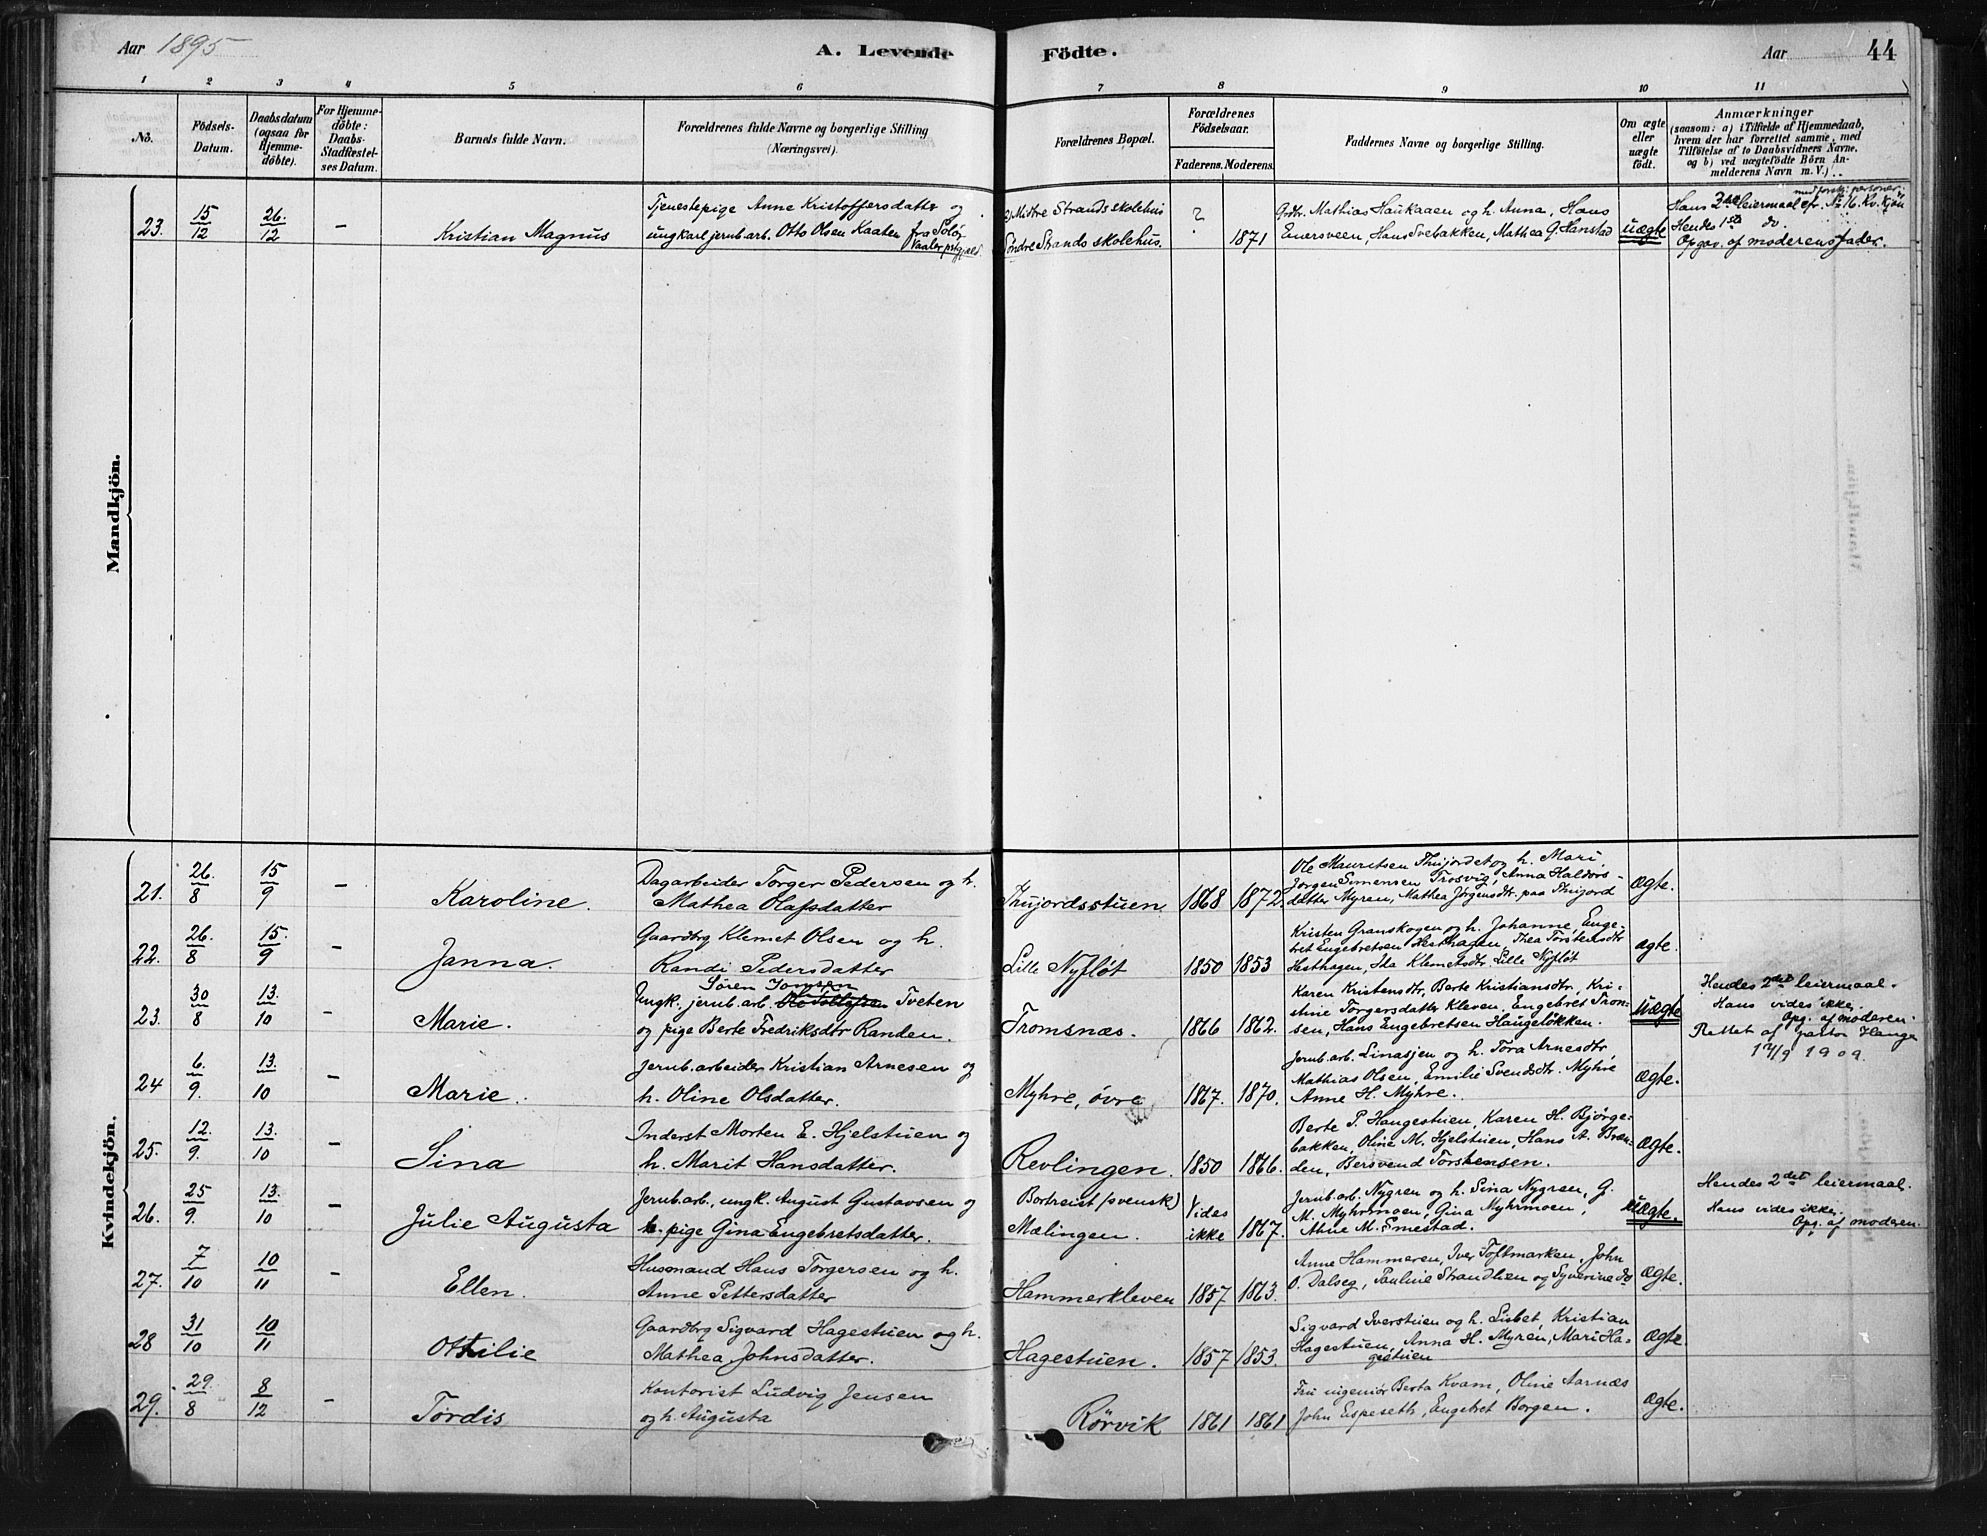 Aar 1895
A. Levende Födte.
Aar
44
1 2 3 4 5 6 7 8 9 10 11
No.
Födsels-Datum.
Daabsdatum (ogsaa for Hjemme-döbte).
For Hjemme-döbte: Daabs-Stadfæstel-ses Datum.
Barnets fulde Navn.
Forældrenes fulde Navne og borgerlige Stilling (Næringsvei).
Forældrenes Bopæl.
Forældrenes Födselsaar.
Faderens. Moderens.
Faddernes Navne og borgerlige Stilling.
Om ægte eller uægte födt.
Anmærkninger
(saasom: a) i Tilfælde af Hjemmedaab,
hvem der har forrettet samme, med
Tilföielse af to Daabsvidners Navne,
og b) ved uægtefödte Börn An-
melderens Navn m. V.)
Mandkjön.
23. 15/12 26./12 –
Kristian Magnus
Tjenestepige Anne Kristoffersdatter og
ungkarl jernb.arb. Otto Olsen Kaaten fra Solör
Vaaler prtgjæld.
Mitre Strands skolehus
Söndre Strands skolehus.
? 1871
Grdbr. Mathias Haukaaen og h. Anna, Hans
Enersveen, Hans Svebakken, Mathea G. Hanstad
uægte
med forskj. personer.
Hans 2det leiermaal cfr. No 16. Kv. kjön
Hendes 1ste do.
Opgav. af moderens fader.
Kvindekjön.
21. 26./8 15/9 –
Karoline.
Dagarbeider Torger Pedersen og h.
Mathea Olafsdatter
Thujordsstuen 1868 1872.
Ole Mauritsen Thujordet og h. Mari,
Jørgen Simensen Trosvig, Anna Haldors-
datter Myren, Mathea Jørgensdtr. paa Thujord
Ægte.
22. 26./8 15./9 –
Janna.
Gaardbrg Klemet Olsen og h.
Randi Pedersdatter
Lille Nyfløt 1850 1853
Kristen Granskogen og h. Johanne, Enge-
bret Engebretsen Hesthagen, Thea Torstensdtr
Hesthagen, Ida Klemetsdtr. Lille Nyfløt
ægte.
23. 30/8 13./10 –
Marie.
Søren Jonsen
Ungk. jernb. arb. Tveten
og pige Berte Fredriksdtr Randen.
Tromsnæs. 1866 1862.
Karen Kristensdtr, Berte Kristiansdtr, Kri-
stine Torgersdatter Kleven, Engebret Tron-
sen, Hans Engebretsen Haugeløkken.
uægte
Hendes 2det leiermaal.
Hans vides ikke.
Opg. af moderen.
Rettet af pastor Hauge
17/9 1909.
24 6./9. 13./10 –
Marie.
Jernb.arbeider Kristian Arnesen og
h. Oline Olsdatter.
Myhre, övre 1867. 1870.
Jernb. arb. Linasjen og h. Tora Arnesdtr,
Mathias Olsen, Emilie Svendsdtr. Myhre
Anne H. Myhre.
Ægte.
25. 12./9. 13./10 –
Sina
Inderst Morten E. Hjelstuen og
h. Marit Hansdatter.
Revlingen. 1850 1866.
Berte P. Haugestuen, Karen H. Bjørge-
bakken, Oline M. Hjelstuen, Hans A. Bræn-
den, Bersvend Torstensen.
Ægte.
26. 25/9. 13./10 –
Julie Augusta
Jernb.arb., ungk. August Gustavsen og
pige Gina Engebretsdatter.
Bortreist (svensk)
Mælingen.
Vides
ikke 1867.
Jernb. arb. Nygren og h. Sina Nygren, G.
M. Myhrmoen, Gina Myhrmoen,
Anne M. Emestad.
uægte.
Hendes 2det leiermaal.
Hans vides ikke.
Opg. af moderen.
27. 7/10 10/11 –
Ellen.
Husmand Hans Torgersen og h.
Anne Pettersdatter
Hammerkleven 1857 1863.
Anne Hammeren, Iver Toftmarken, John
O. Dalseg, Pauline Strandlien og Syverine do
Ægte.
28 31/10 10/11
Ottilie
Gaardbrg Sigvard Hagestuen og h.
Mathea Johnsdatter.
Hagestuen. 1857 1853.
Sigvard Iverstuen og h. Lisbet, Kristian
Hagestuen, Anna H. Myren, Mari Ha-
gestuen
Ægte.
29. 29./8 8/12 –
Tordis
Kontorist Ludvig Jensen
og h. Augusta
Rörvik 1861 1861
Fru ingeniör Berta Kvam, Oline Aarnæs
John Espeseth, Engebret Borgen.
Ægte.